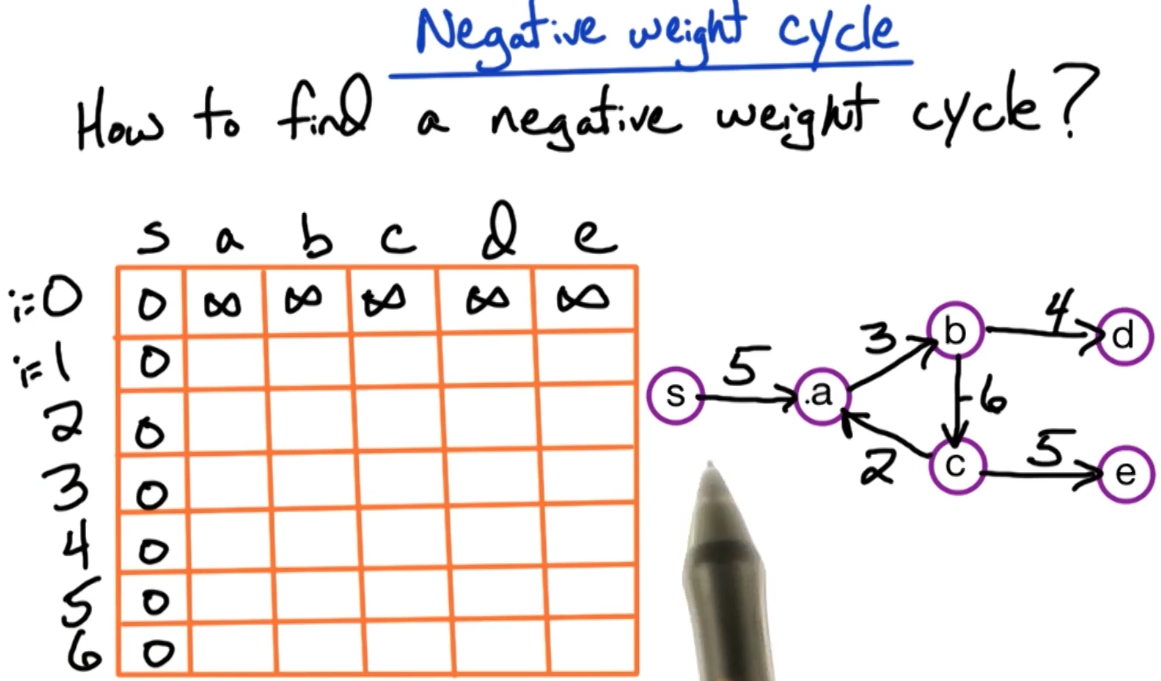 Negative weight cycle
How to find a negative weight cycle?
s a b c d e
i=0 0 ∞ ∞ ∞ ∞ ∞
i=1 0
2 0
3 0
4 0
5 0
6 0
s 5 a 3 b 4 d
-6
2 c 5 e